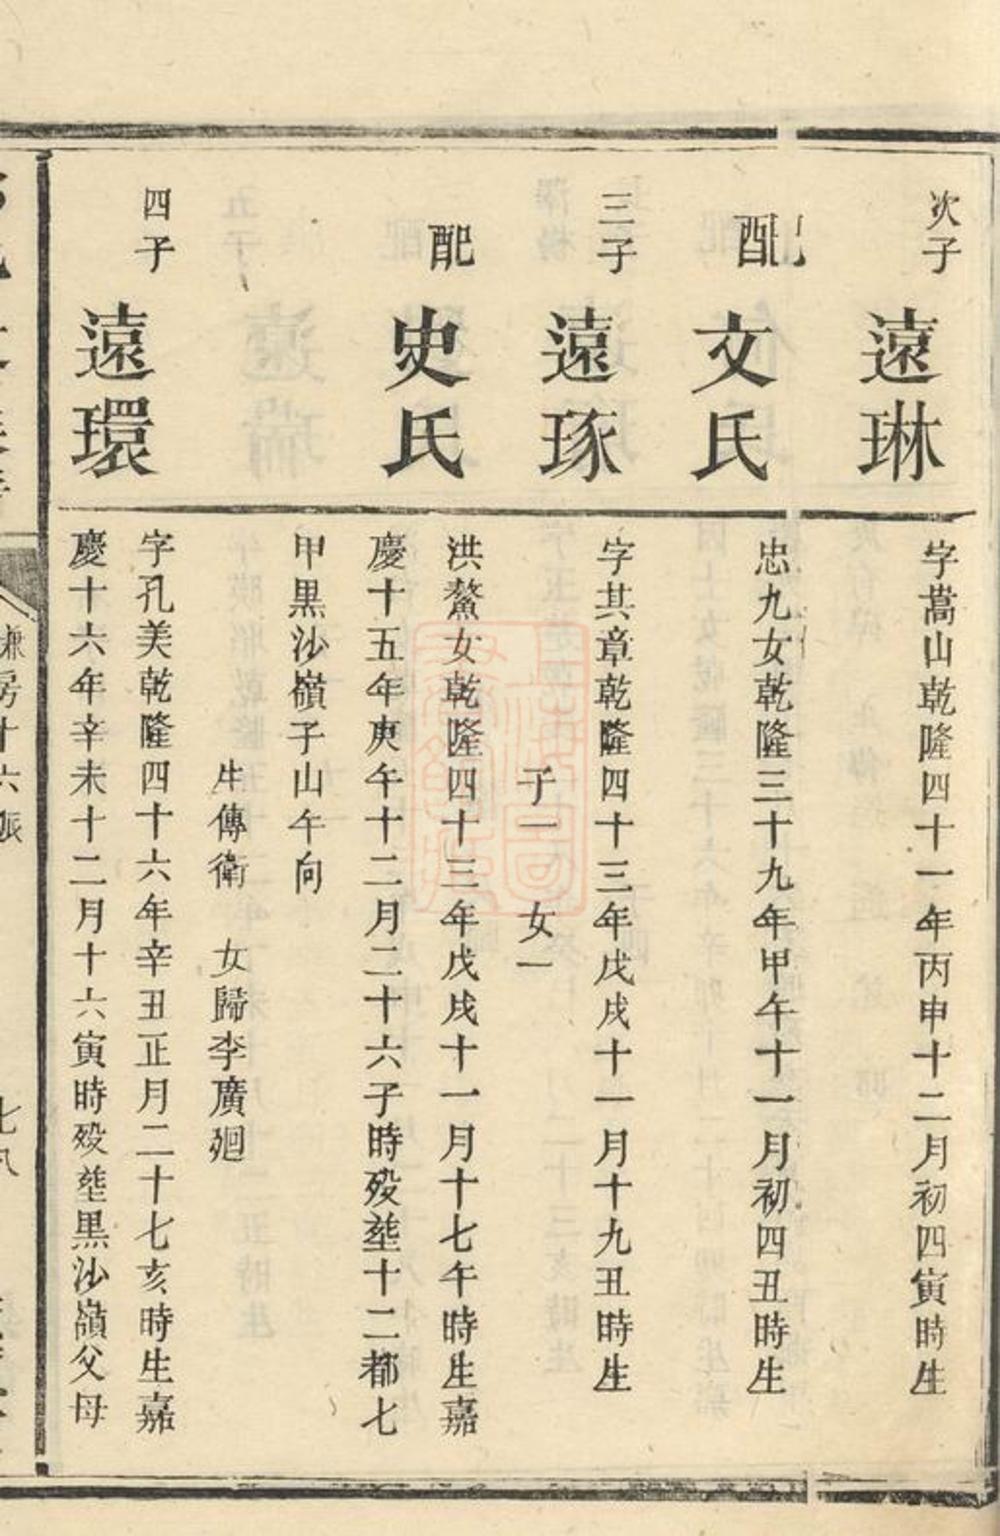 次子
遠琳
字嵩山乾隆四十一年丙申十二月初四寅時生
配
文氏
忠九女乾隆三十九年甲午十一月初四丑時生
三子
遠琢
字其章乾隆四十三年戊戌十一月十九丑時生
子一 女一
配
史氏
洪鰲女乾隆四十三年戊戌十一月十七午時生嘉
慶十五年庚午十二月二十六子時歿塟十二都七
甲黑沙嶺子山午向
生傳衛 女歸李廣廻
四子
遠環
字孔美乾隆四十六年辛丑正月二十七亥時生嘉
慶十六年辛未十二月十六寅時歿塟黑沙嶺父母
房十六派
七八